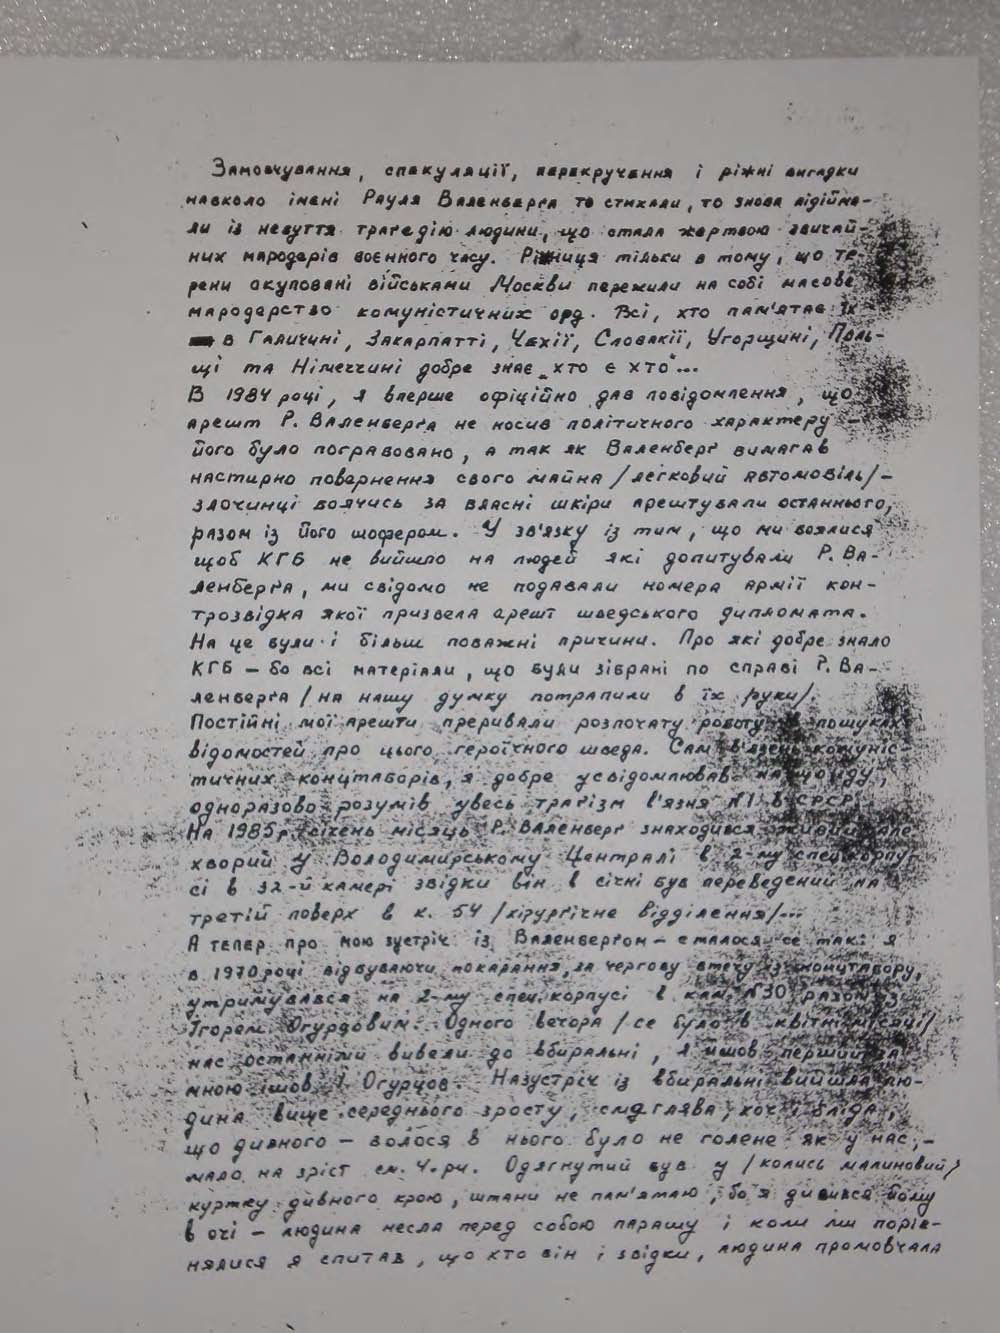 Замовчування, спекуляції, перекручення і ріжні вигадки
навколо імені Рауля Валенберґа то стихали, то знова підійма-
ли із небуття траґедію людини, що стала жертвою звичай-
них мародерів воєнного часу. Ріжниця тільки в тому, що те-
рени окуповані військами Москви пережили на собі масове
мародерство комуністичних орд. Всі, хто пам'ятає їх
в Галичині, Закарпатті, Чехії, Словакії, Угорщині, Поль-
щі та Німеччині добре знає „хто є хто"...
В 1984 році, я вперше офіційно дав повідомлення, що
арешт Р. Валенберґа не носив політичного характеру –
його було пограбовано, а так як Валенберґ вимагав
настирно повернення свого майна /легковий автомовіль/ –
злочинці боячись за власні шкіри арештували останнього,
разом із його шофером. У зв'язку із тим, що ми боялися
щоб КГБ не вийшло на людей які допитували Р. Ва-
ленберґа, ми свідомо не подавали номера армії кон-
трозвідка якої призвела арешт шведського дипломата.
На це були і більш поважні причини. Про які добре знало
КГБ – бо всі матеріали, що були зібрані по справі Р. Ва-
ленберґа /на нашу думку потрапили в їх руки/.
Постійні мої арешти преривали розпочату роботу в пошуках
відомостей про цього героїчного шведа. Сам в'язень комуніс-
тичних концтаборів, я добре усвідомлював на що йду,
одноразово розумів увесь траґізм в'язня №1 в СРСР.
На 1985 р. січень місяць Р. Валенберґ знаходився живий але
хворий у Володимирському Централі в 2-му спец.корпу-
сі в 32-й камері звідки він в січні був переведений на
третій поверх в к. 54 /хірурґічне відділення/...
А тепер про мою зустріч із Валенберґом – сталося се так: я
в 1970 році відбуваючи покарання, за чергову втечу із концтабору,
утримувався на 2-му спец.корпусі в кам. №30 разом з
Ігорем Огурцовим. Одного вечора /се було в квітні місяці/
нас останніми вивели до вбиральні, я йшов першим за
мною ішов І. Огурцов. Назустріч із вбиральні вийшла лю-
дина вище середнього зросту, смаглява, хоч і бліда,
що дивного – волося в нього було не голене як у нас, –
мало на зріст см. 4. рч. Одягнутий був у /колись малиновий/
куртку дивного крою, штани не пам'ятаю, бо я дивився йому
в очі – людина несла перед собою парашу і коли ми порів-
нялися я спитав, що хто він і звідки, людина промовчала